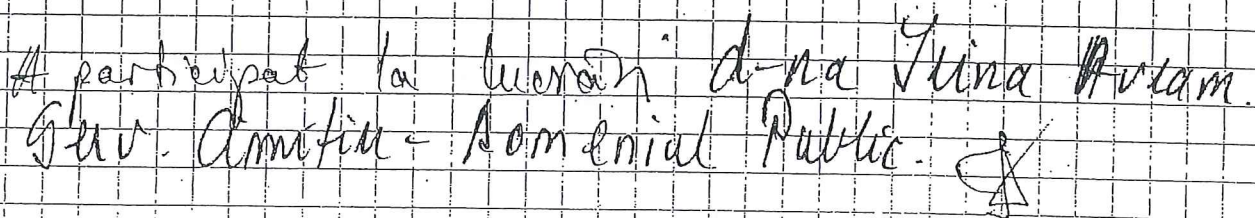 A participat la lucrări d-na Irina Avram.
Serv. - Domeniul Public.